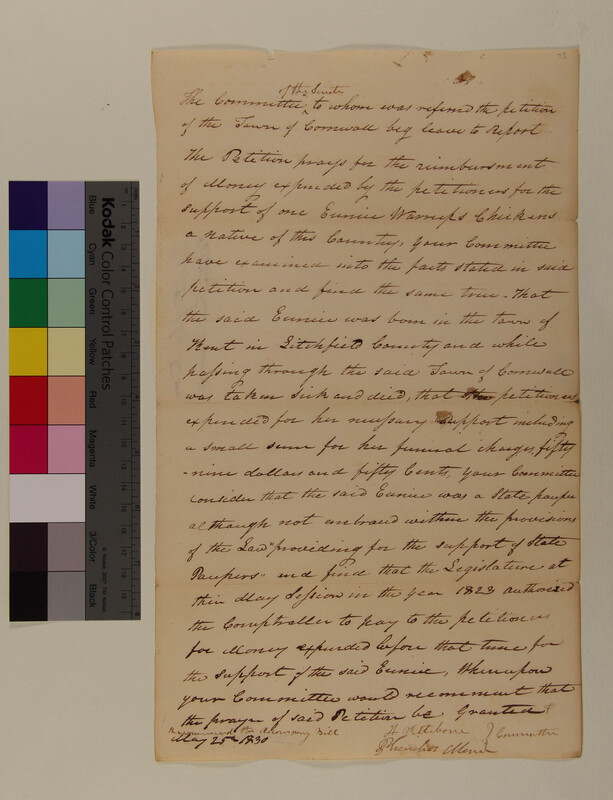 of the Senate
The Committee to whom was referred the petition
of the Town of Cornwall beg leave to Report
The Petition prays for the reimbursment
of Money expended by the petitioners for the
support of one Eunice Warrups Chickens
a native of this Country, your Committee
have examined into the facts stated in said
petition and find the same true. That
the said Eunice was born in the town of
Kent in Litchfield County and while
passing through the said Town of Cornwall
was taken sick and died, that the petitioners
expended for her necessary support including
a small sum for her funeral charges fifty
-nine dollars and fifty Cents, your Committee
consider that the said Eunice was a State pauper
although not embraced within the provisions
of the Law "providing for the support of State
Paupers" and find that the Legislature at
their May Session in the year 1823 authorized
the Comptroller to pay to the petitioners
for Money expended before that time for
the support of the said Eunice, Whereupon
your Committee would recomment that
the prayer of said Petition be Granted
Recommend the accompany Bill
May 25th 1830
Committee
Kodak Color Control Patches
Blue
Cyan
Green
Yellow
Red
Magenta
White
3/Color
Black